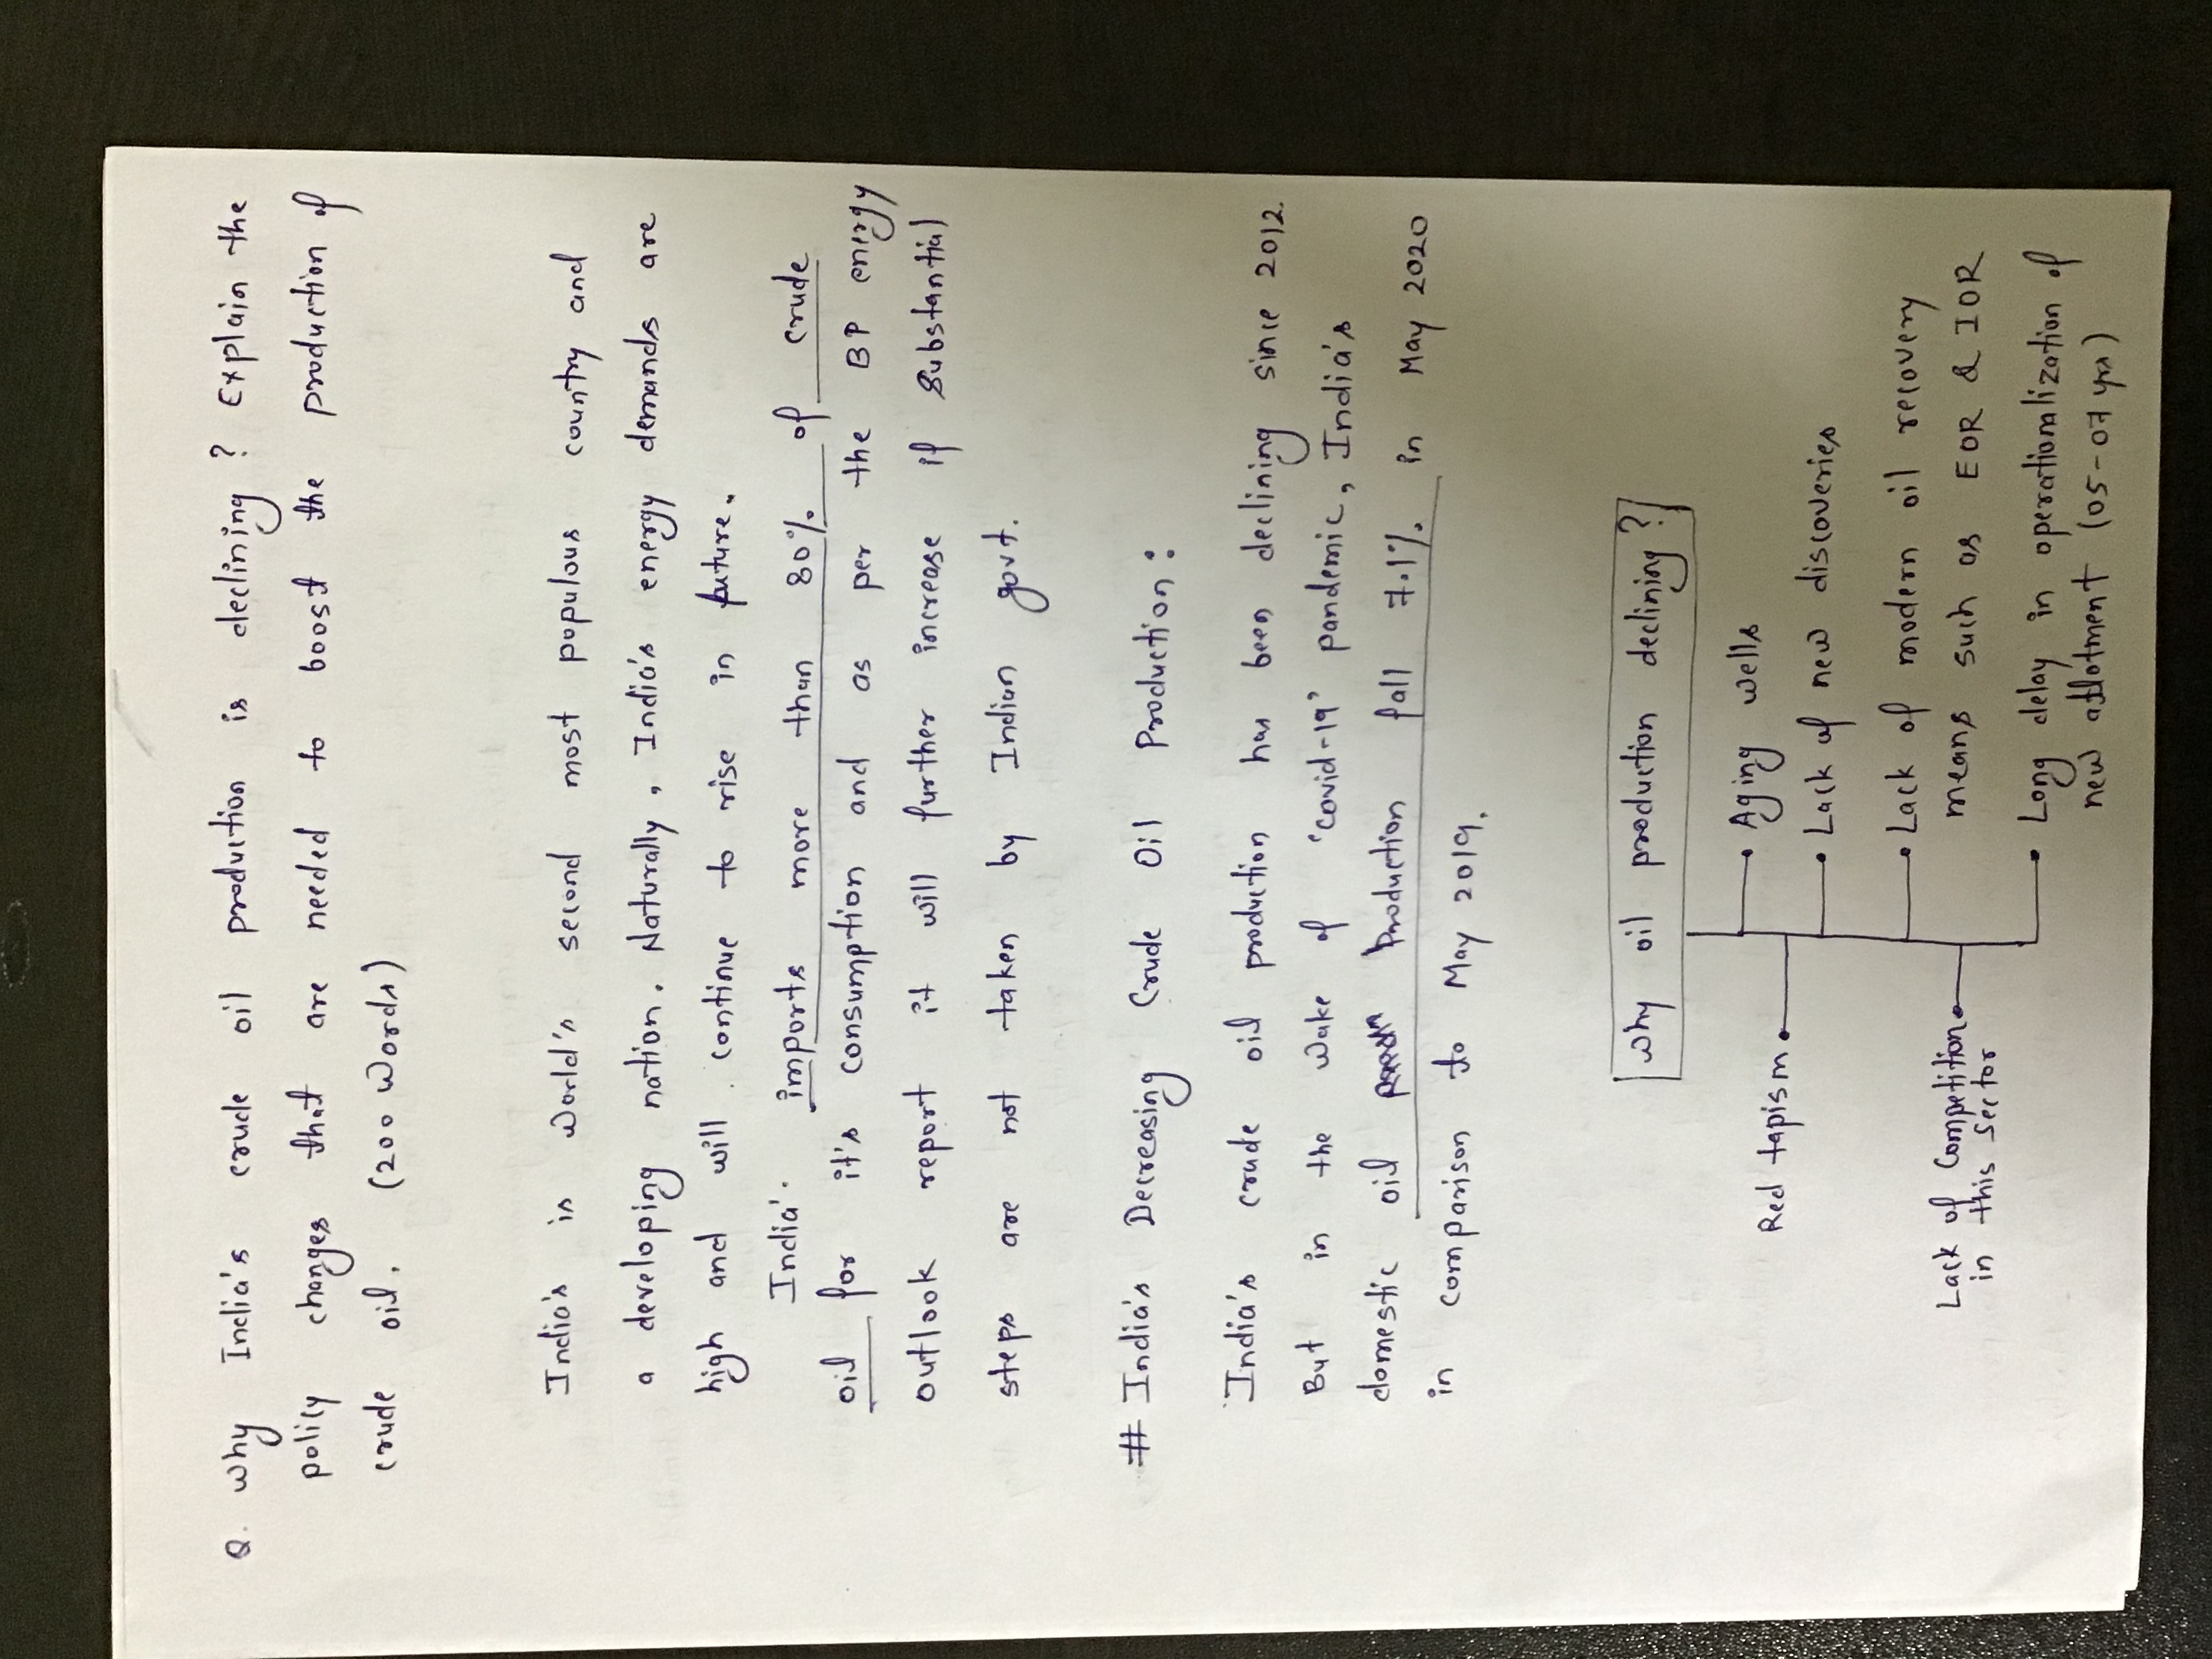 Q. Why India's crude oil production is declining ? Explain the
policy changes that are needed to boost the production of
crude oil. (200 words)
India's is world's second most populous country and
a developing nation. Naturally, India's energy demands are
high and will continue to rise in future.
India'. imports more than 80%. of crude
oil for it's consumption and as per the BP energy
outlook report it will further increase if substantial
steps are not taken by Indian govt.
# India's Decreasing Crude Oil Production:
India's crude oil production has been declining since 2012.
But in the wake of 'covid-19' pandemic, India's
domestic oil production fall 7.1%. in May 2020
in comparison to May 2019.
Why oil production declining?
Aging wells
Red tapism
Lack of new discoveries
Lack of modern oil recovery
means such as EOR & IOR
Lack of Competition
in this sector
Long delay in operationalization of
new allotment (05-07 yrs)